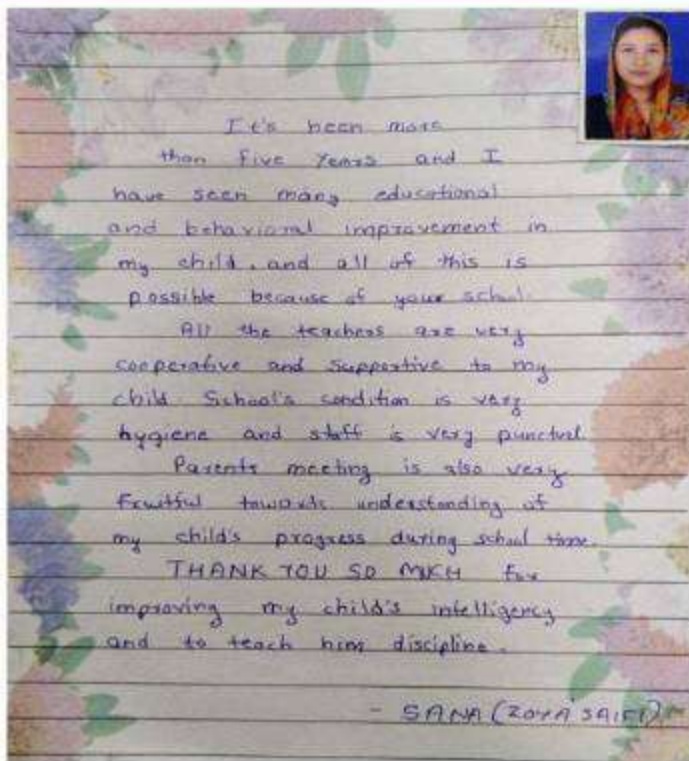 It's been more
than five Years and I
have seen many educational
and behavioral improvement in
my child, and all of this is
possible because of your school.
All the teachers are very
cooperative and supportive to my
child. School's condition is very
hygiene and staff is very punctual.
Parents meeting is also very
Fruitful towards understanding of
my child's progress during school time.
THANK YOU SO MUCH For
improving my child's intelligency
and to teach him discipline.
- SANA (ZOYA SAIFI)